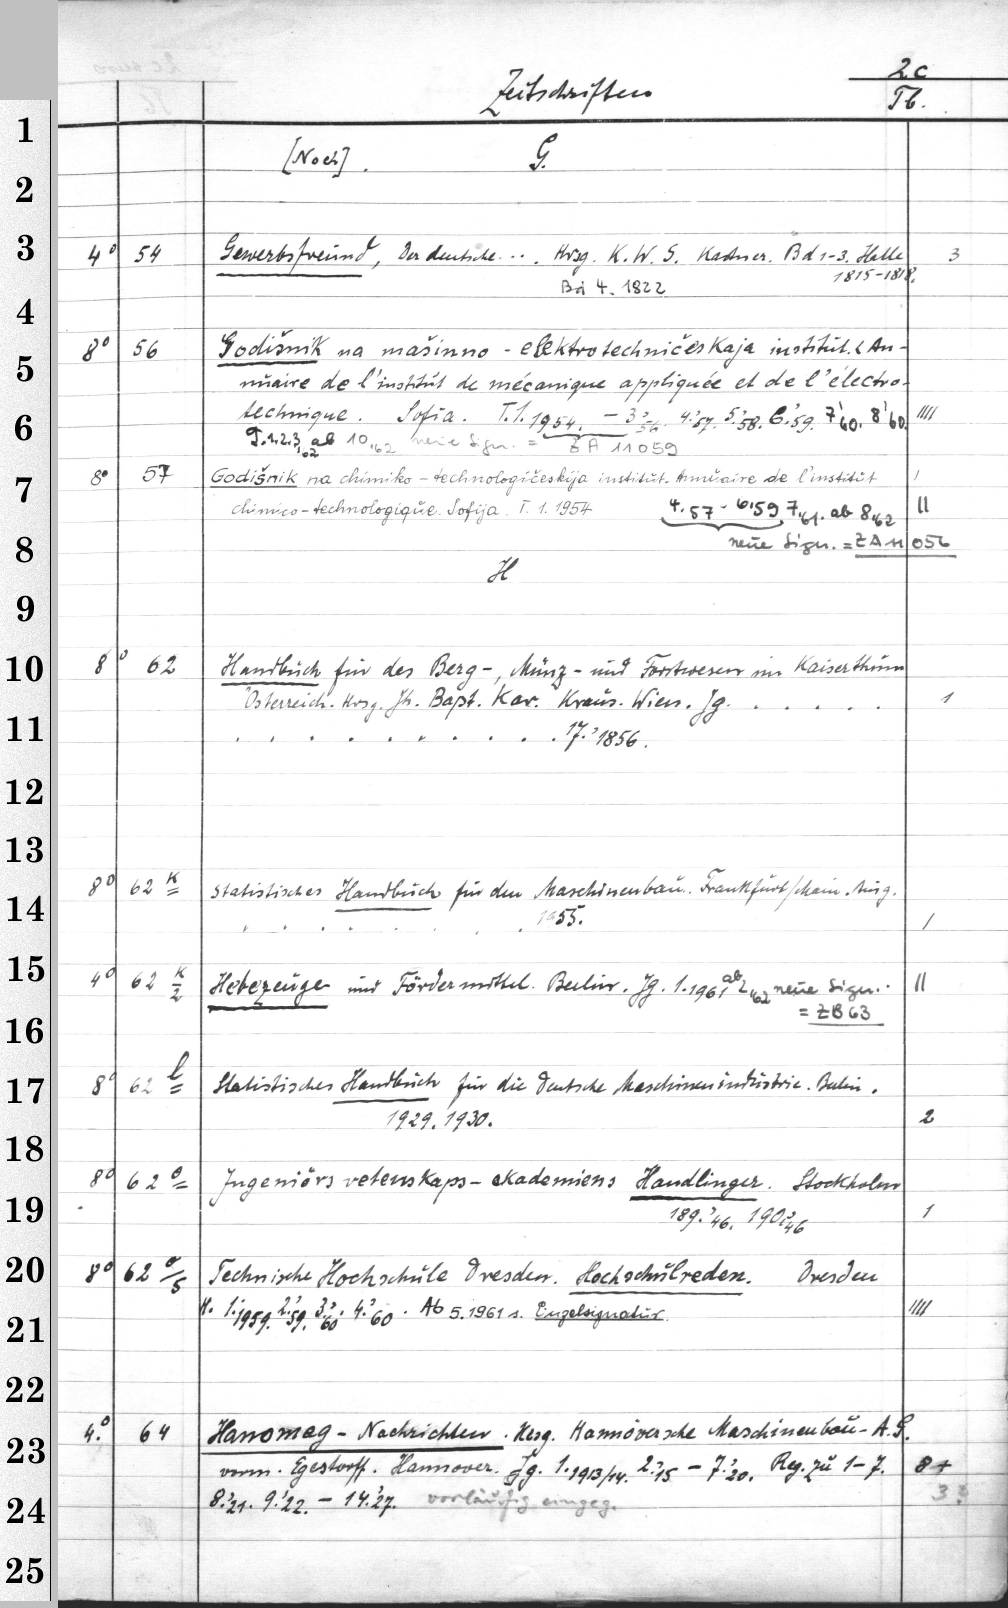 2c
Zeitschriften Tb.
1
[Noch]. G.
2
3 4° 54 Gewerbsfreund, Der deutsche.... Hrsg. K. W. G. Kastner. Bd 1-3. Halle 3
1815-1818.
Bd 4. 1822
4
8° 56 Godišnik na mašinno-elektrotechničeskaja institut. <An-
5 nuaire de l'institut de mécanique appliquée et de l'électro-
6 technique. Sofia. T.1.1954. - 3,'56. 4,'57. 5,'58. 6,'59. 7,'60. 8,'60. IIII
T.1.2.3,'62 ab 10,'62 neue Sign. = ZA 11059
7 8° 57 Godišnik na chimiko-technologičeskija institut. Annuaire de l'institut I
chimico-technologique. Sofija. T. 1. 1954 4.57 - 6,59 7,'61. ab 8,'62 II
8 neue Sign. = ZA 11056
H
9
10 8° 62 Handbuch für des Berg-, Münz- und Forstwesen im Kaiserthum
Österreich. Hrsg. Jh. Bapt. Kar. Kraus. Wien. Jg. . . . . . 1
11 . . . . . . . . . . 17,'1856.
12
13
8° 62 k Statistisches Handbuch für den Maschinenbau. Frankfurt/Main. Ausg.
14 . . . . . . . . 1955. 1
15 4° 62 k/2 Hebezeuge und Fördermittel. Berlin. Jg. 1.1961 ab 2,'62 neue Sign. II
= ZB 63
16
17 8° 62 l Statistisches Handbuch für die deutsche Maschinenindustrie. Berlin.
1929. 1930. 2
18
8° 62 o Ingeniörsvetenskaps-akademiens Handlinger. Stockholm
19 189,'46. 190,'46 1
20 8° 62 o/5 Technische Hochschule Dresden. Hochschulreden. Dresden
H. 1,'1959. 2,'59. 3,'60. 4,'60. Ab 5.1961 s. Einzelsignatur. IIII
21
22
4.° 64 Hanomag-Nachrichten. Hrsg. Hannoversche Maschinenbau-A.G.
23 vorm. Egestorff. Hannover. Jg. 1.1913/14. 2,'15 - 7,'20. Reg. zu 1-7. 8+
24 8,'21. 9,'22. - 14,'27. vorläufig eingeg. 3?
25